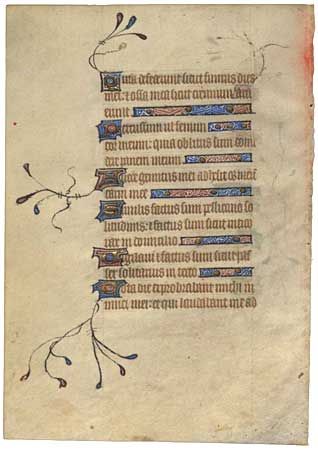 Quia defecerunt sicut fumus dies
mei: et ossa mea sicut cremium aru
erunt
Percussum ut fenum
cor meum: quia oblitus sum come
dere panem meum
voce gemitus mei adhesit os
carni mee
Similis factus sum pellicano so
litudinis: factus sum sicut nictico
rax in domicilio
Vigilavi et factus sum sicut pas
ser solitarius in tecto
Tota die exprobrabant michi ini
mici mei: et qui laudabant me ad